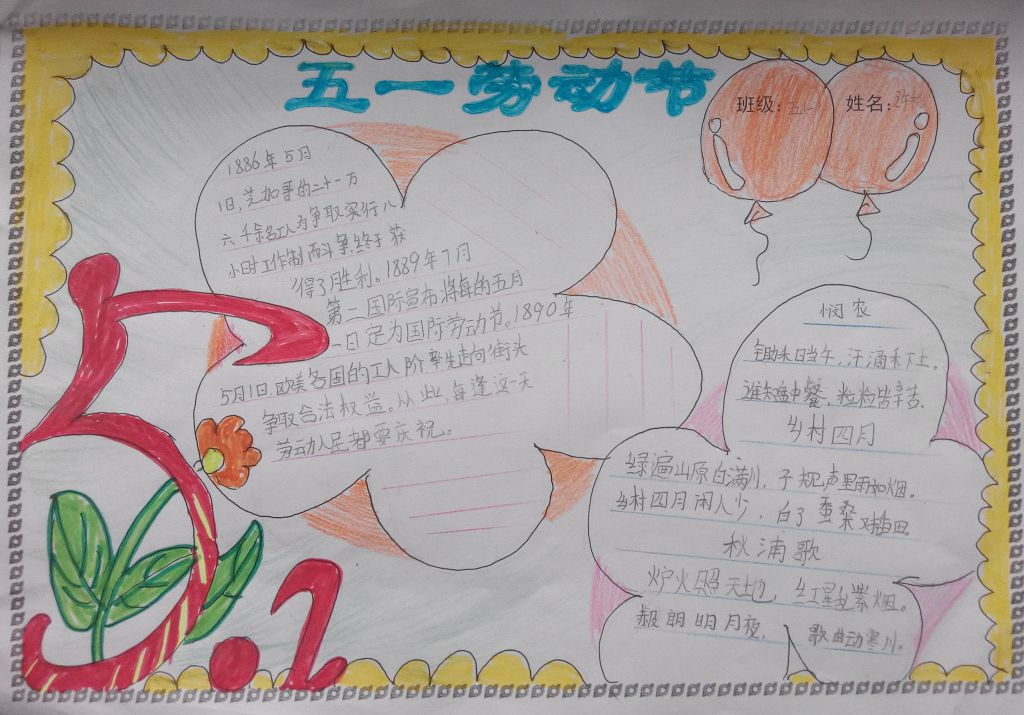 五一劳动节
班级：五(一)
姓名：
1886年5月
1日，芝加哥的二十一万
六千余名工人为争取实行八
小时工作制而斗争，终于获
得了胜利。1889年7月
第二国际宣布将每的五月
一日定为国际劳动节。1890年
5月1日欧美各国的工人阶率先走向街头
争取合法权益。从此，每逢这一天
劳动人民都要庆祝。
悯农
锄禾日当午，汗滴禾下土。
谁知盘中餐，粒粒皆辛苦。
乡村四月
绿遍山原白满川，子规声里雨如烟。
乡村四月闲人少，白了蚕桑又插田。
秋浦歌
炉火照天地，红星乱紫烟。
赧朗明月夜，歌曲动寒川。
5.1